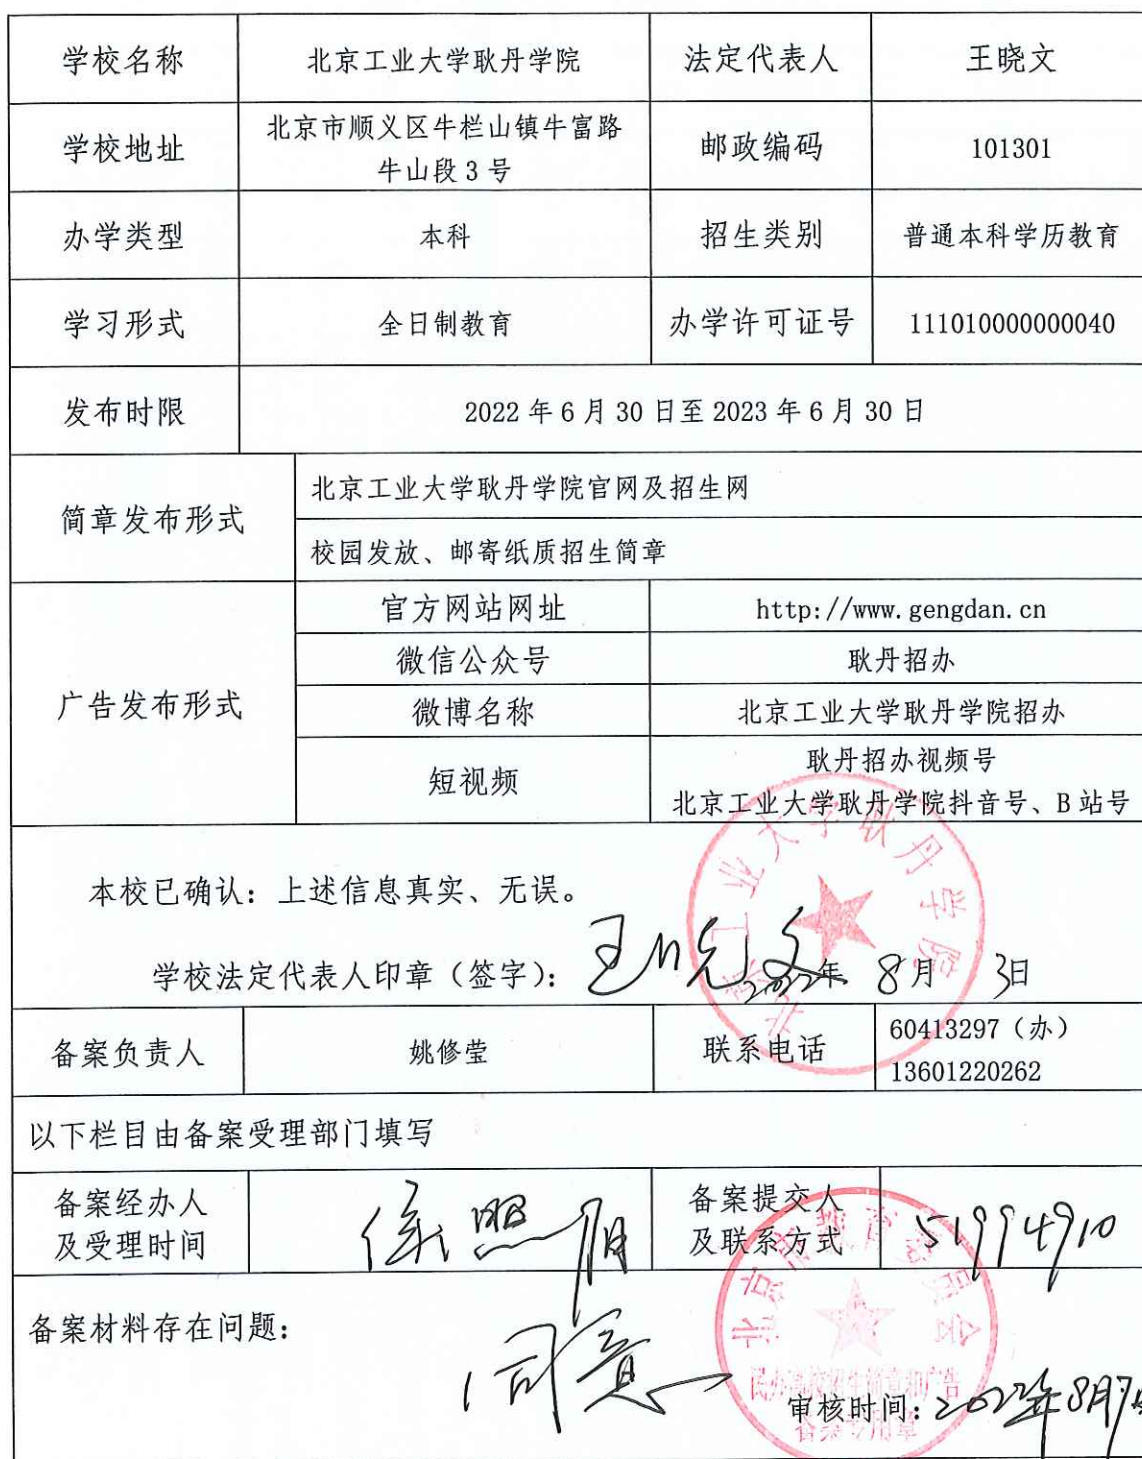 学校名称 北京工业大学耿丹学院 法定代表人 王晓文
学校地址 北京市顺义区牛栏山镇牛富路
牛山段 3 号 邮政编码 101301
办学类型 本科 招生类别 普通本科学历教育
学习形式 全日制教育 办学许可证号 111010000000040
发布时限 2022 年 6 月 30 日至 2023 年 6 月 30 日
简章发布形式 北京工业大学耿丹学院官网及招生网
校园发放、邮寄纸质招生简章
广告发布形式
官方网站网址 http://www.gengdan.cn
微信公众号 耿丹招办
微博名称 北京工业大学耿丹学院招办
短视频 耿丹招办视频号
北京工业大学耿丹学院抖音号、B 站号
北京工业大学耿丹学院
本校已确认：上述信息真实、无误。
学校法定代表人印章（签字）：王晓文 2022年 8月 3日
备案负责人 姚修莹 联系电话 60413297（办）
13601220262
以下栏目由备案受理部门填写
备案经办人
及受理时间
备案提交人
及联系方式 51994910
北京市教育委员会
民办高校招生简章和广告
备案专用章
备案材料存在问题：
同意
审核时间：2022年8月7日